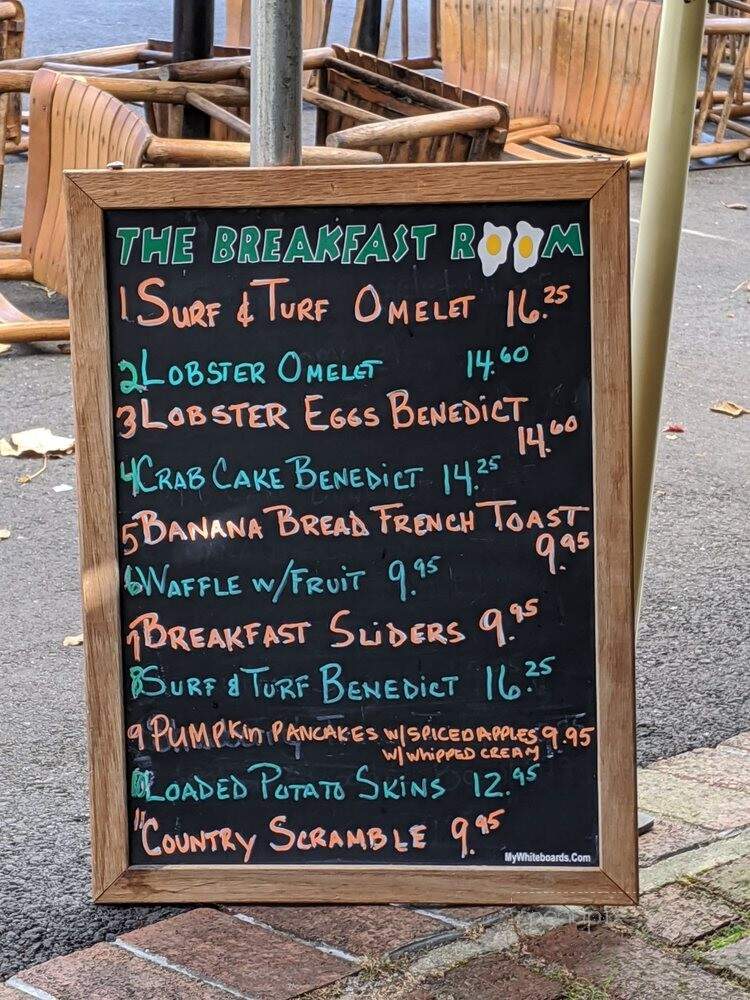 THE BREAKFAST ROOM
1 SURF & TURF OMELET 16.25
2 LOBSTER OMELET 14.60
3 LOBSTER EGGS BENEDICT
14.60
4 CRAB CAKE BENEDICT 14.25
5 BANANA BREAD FRENCH TOAST
9.95
6 WAFFLE W/FRUIT 9.95
7 BREAKFAST SLIDERS 9.95
8 SURF & TURF BENEDICT 16.25
9 PUMPKIN PANCAKES W/SPICED APPLES 9.95
W/WHIPPED CREAM
10 LOADED POTATO SKINS 12.95
11 COUNTRY SCRAMBLE 9.95
MyWhiteboards.Com